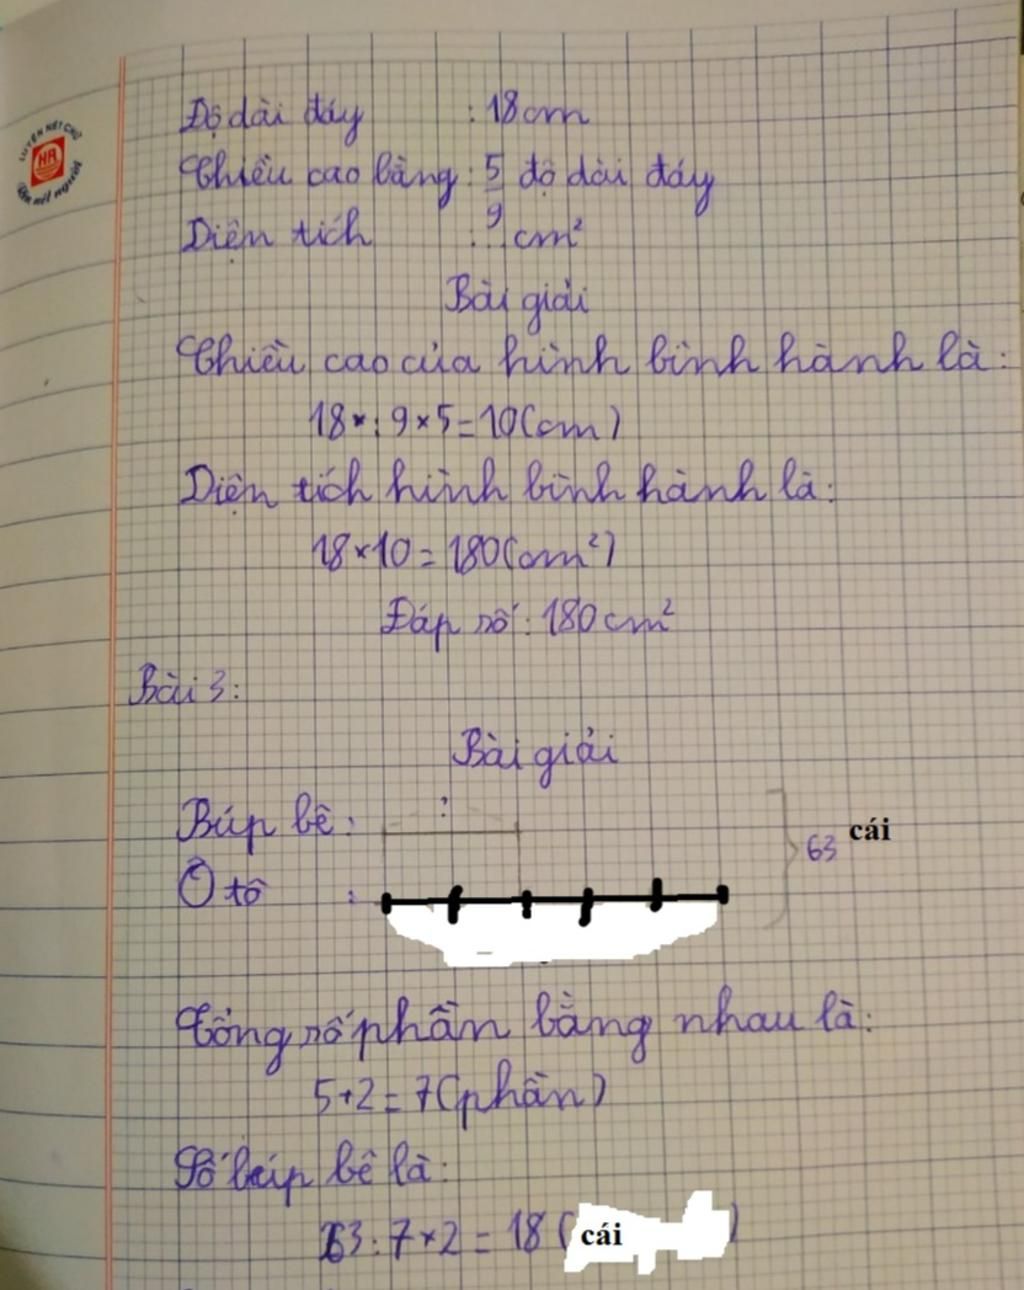 LUYỆN NÉT CHỮ
HA
Rèn nết người
Độ dài đáy : 18cm
Chiều cao bằng : 5/9 độ dài đáy
Diện tích : ? cm²
Bài giải
Chiều cao của hình bình hành là:
18 : 9 × 5 = 10 (cm)
Diện tích hình bình hành là:
18 × 10 = 180 (cm²)
Đáp số : 180 cm²
Bài 3:
Bài giải
?
Búp bê :
63 cái
Ô tô :
Tổng số phần bằng nhau là:
5 + 2 = 7 (phần)
Số búp bê là:
63 : 7 × 2 = 18 (cái)